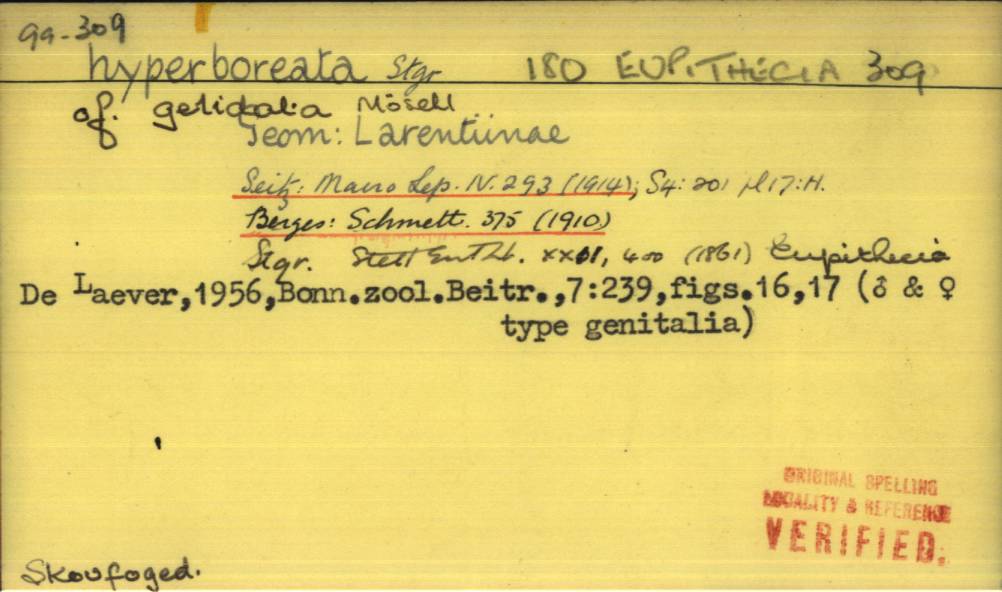 99-309
hyperboreata Stgr 180 EUPITHECIA 309
of. gelidata Möschl
Geom: Larentiinae
Seitz: Macro Lep. IV. 293 (1914); S4: 201 pl 17: H.
Berges: Schmett. 375 (1910)
Stgr. Stett Ent Zt. xxII, 400 (1861) Eupithecia
De Laever,1956,Bonn.zool.Beitr.,7:239,figs.16,17 (♂ & ♀
type genitalia)
ORIGINAL SPELLING
LOCALITY & REFERENCE
VERIFIED.
Skovfoged.